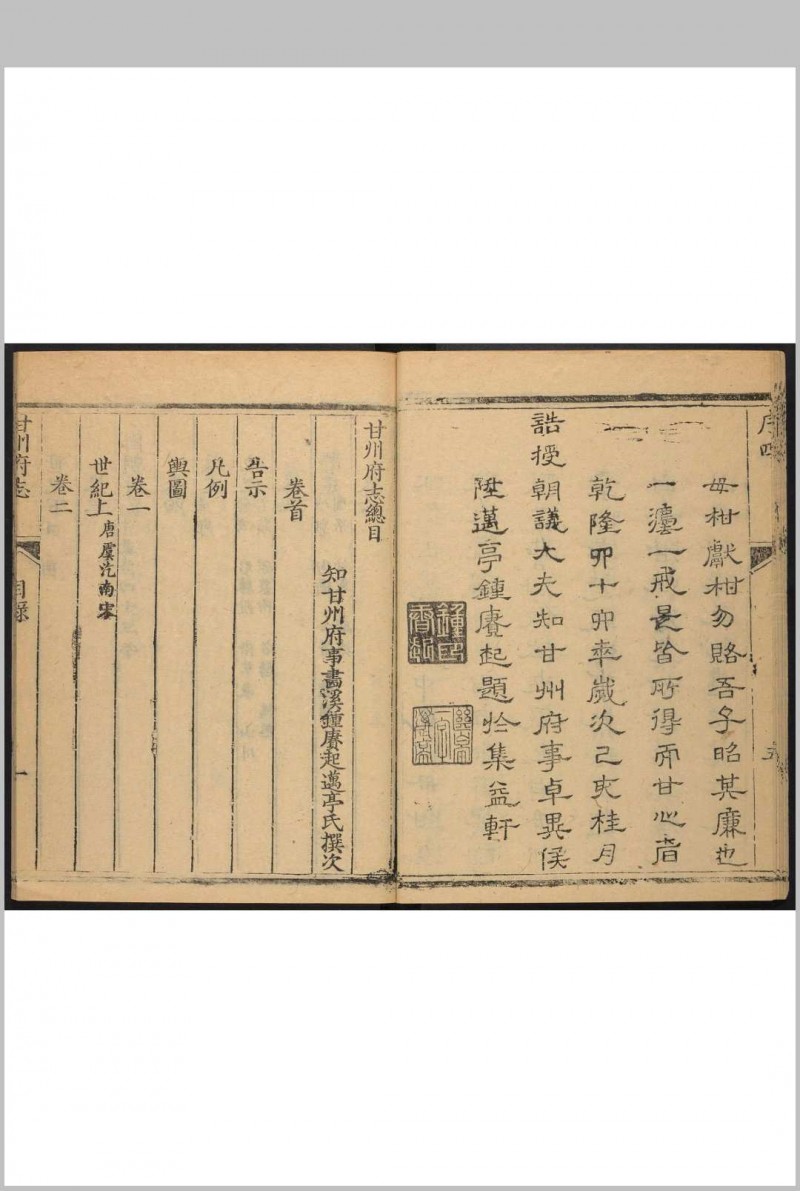 序四
五
母柑獻柑勿賂吾子昭其廉也
一灋一戒是皆所得而甘心者
乾隆卯十卯率歲次己亥桂月
誥授朝議大夫知甘州府事卓異侯
陞邁亭鍾賡起題於集益軒
鍾印賡起
甘州府志總目
知甘州府事畵溪鍾賡起邁亭氏撰次
卷首
告示
凡例
輿圖
卷一
世紀上 唐虞迄南宋
卷二
甘州府志
目錄
一